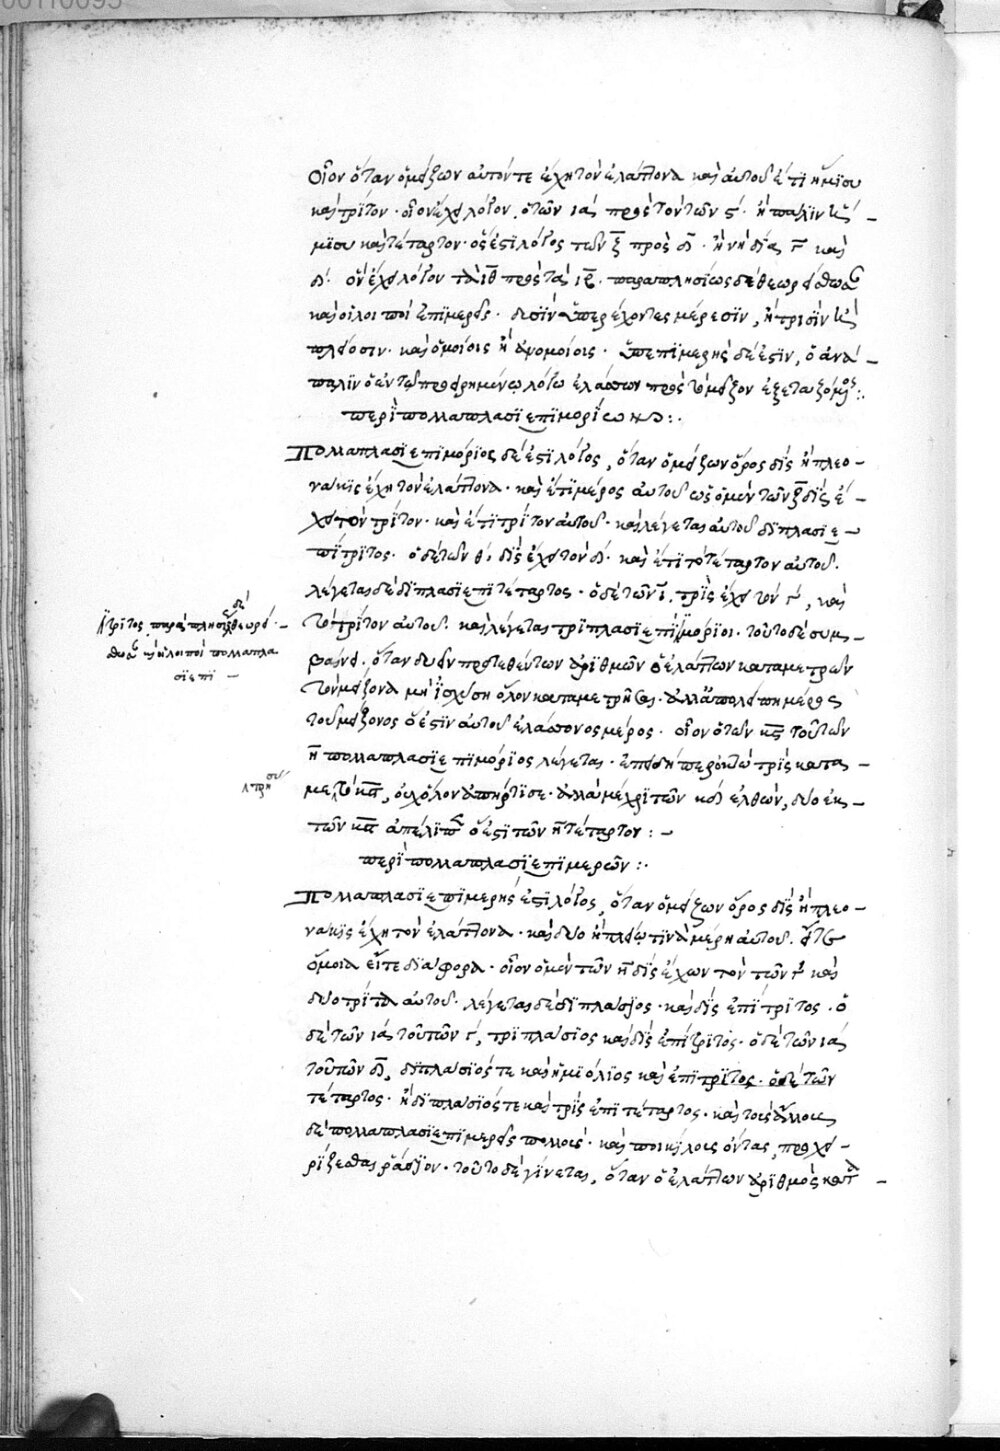 οἷον ὅταν ὁ μείζων αὐτόν τε ἔχῃ τὸν ἐλάττονα καὶ αὐτοῦ ἔτι ἥμισυ
καὶ τρίτον· οἷον ἔχει λόγον, ὁ τῶν ια πρὸς τὸν τῶν ϛ· ἢ πάλιν ἥ–
μισυ καὶ τέταρτον· ὅς ἐστι λόγος τῶν ζ πρὸς δ· ἢ νὴ δία γ καὶ
δ· ὃν ἔχει λόγον τὰ ιθ πρὸς τὰ ιβ. παραπλησίως δὲ θεωρείσθωσαν
καὶ οἱ λοιποὶ ἐπιμερεῖς· δυσὶν ὑπερέχοντες μέρεσιν, ἢ τρισὶν ἢ
πλείοσιν· καὶ ὁμοίοις ἢ ἀνομοίοις· ὑπεπιμερὴς δέ ἐστιν, ὁ ἀνά–
παλιν ὁ ἐν τῷ προειρημένῳ λόγῳ ἐλάσσων πρὸς τὸν μείζον ἐξεταζόμενος:
περὶ πολλαπλασιεπιμορίων:
Πολλαπλασιεπιμόριος δέ ἐστι λόγος, ὅταν ὁ μείζων ὅρος δὶς ἢ πλεο–
νάκις ἔχῃ τὸν ἐλάττονα· καὶ ἔτι μέρος αὐτοῦ ὡς ὁ μὲν τῶν ζ δὶς ἔ–
χει τὸν τρίτον· καὶ ἔτι τρίτον αὐτοῦ· καὶ λέγεται αὐτοῦ διπλασιε–
πίτριτος· ὁ δὲ τῶν θ, δὶς ἔχει τὸν δ· καὶ ἔτι τὸ τέταρτον αὐτοῦ.
λέγεται δὲ διπλασιεπιτέταρτος· ὁ δὲ τῶν ι, τρὶς ἔχει τὸν γ, καὶ
τὸ τρίτον αὐτοῦ· καὶ λέγεται τριπλασιεπιμόριοι· τοῦτο δὲ συμ–
βαίνει· ὅταν δυεῖν προτεθέντων ἀριθμῶν ὁ ἐλάττων καταμετρῶν
τὸν μείζονα μὴ ἰσχύσῃ ὅλον καταμετρῆσαι· ἀλλ' ἀπολείπῃ μέρος
τοῦ μείζονος ὅ ἐστιν αὐτοῦ ἐλάσσονος μέρος· οἷον ὁ τῶν κϛ τοῦ τῶν
η πολλαπλασιεπιμόριος λέγεται· ἐπειδήπερ ὀκτὼ τρὶς κατα–
με τὸν κϛ, οὐχ ὅλον ἀπήρτισε· ἀλλὰ μέχρι τῶν κδ ἐλθὼν, δύο ἐκ
τῶν κϛ ἀπέλιπεν ὅ ἐστι τῶν η τέταρτον:–
περὶ πολλαπλασιεπιμερῶν:
Πολλαπλασιεπιμερής ἐστι λόγος, ὅταν ὁ μείζων ὅρος δὶς ἢ πλεο–
νάκις ἔχῃ τὸν ἐλάττονα· καὶ δύο ἢ πλείω τινὰ μέρη αὐτοῦ. εἴτε
ὅμοια εἴτε διάφορα· οἷον ὁ μὲν τῶν η δὶς ἔχων τὸν τῶν γ καὶ
δύο τρίτα αὐτοῦ· λέγεται δὲ διπλάσιος· καὶ δὶς ἐπίτριτος· ὁ
δὲ τῶν ια τοῦ τῶν γ, τριπλάσιος καὶ δὶς ἐπίτριτος· ὁ δὲ τῶν ια
τοῦ τῶν δ, διπλάσιός τε καὶ ἡμιόλιος καὶ ἐπίτριτος· ὁ δὲ τῶν
τέταρτος· ἢ διπλάσιός τε καὶ τρὶς ἐπιτέταρτος· καὶ τοῖς ἄλλοις
δὲ πολλαπλασιεπιμερεῖς πολλοὺς· καὶ ποικίλους ὄντας, προχει–
ρίζεσθαι ῥάδιον· τοῦτο δὲ γίνεται, ὅταν ὁ ἐλάττων ἀριθμὸς κατα–
πίτριτος παραπλησίως δὲ θεωρεί–
σθωσαν καὶ οἱ λοιποὶ πολλαπλα
σιεπι–